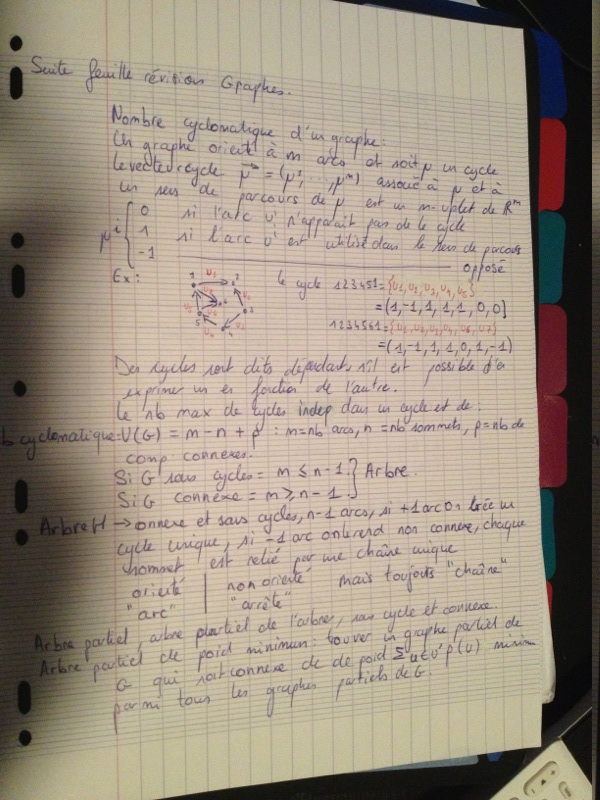 Suite feuille révisions Graphes.
Nombre cyclomatique d'un graphe:
Un graphe orienté à m arcs et soit μ un cycle
Le vecteur cycle μ = (μ¹, ..., μᵐ) associé à μ et à
un sens de parcours de μ est un m-uplet de Rᵐ
μⁱ { 0 si l'arc uⁱ n'apparait pas de le cycle
1 si l'arc uⁱ est utilisé dans le sens de parcours
-1 ———————— opposé
Ex: 1 u1 2 le cycle 123451 = {u1, u2, u3, u4, u5}
= (1, -1, 1, 1, 1, 0, 0)
1234561 = {u1, u2, u3, u4, u6, u7}
= (1, -1, 1, 1, 0, 1, -1)
Des cycles sont dits dépendants s'il est possible d'en
exprimer un en fonction de l'autre.
Le nb max de cycles indep dans un cycle est de:
nb cyclomatique: V(G) = m - n + p : m=nb arcs, n=nb sommets, p=nb de
comp connexes.
Si G sans cycles = m ≤ n-1 } Arbre.
Si G connexe = m ≥ n-1
Arbre H → connexe et sans cycles, n-1 arcs, si +1 arc on crée un
cycle unique, si -1 arc on le rend non connexe, chaque
sommet est relié par une chaîne unique
orienté | non orienté mais toujours "chaîne"
"arc" | "arrête"
Arbre partiel, arbre partiel de l'arbre, sans cycle et connexe.
Arbre partiel de poid minimum: trouver un graphe partiel de
G qui soit connexe de de poid Σ u∈U' P(U) minim
parmi tous les graphes partiels de G.